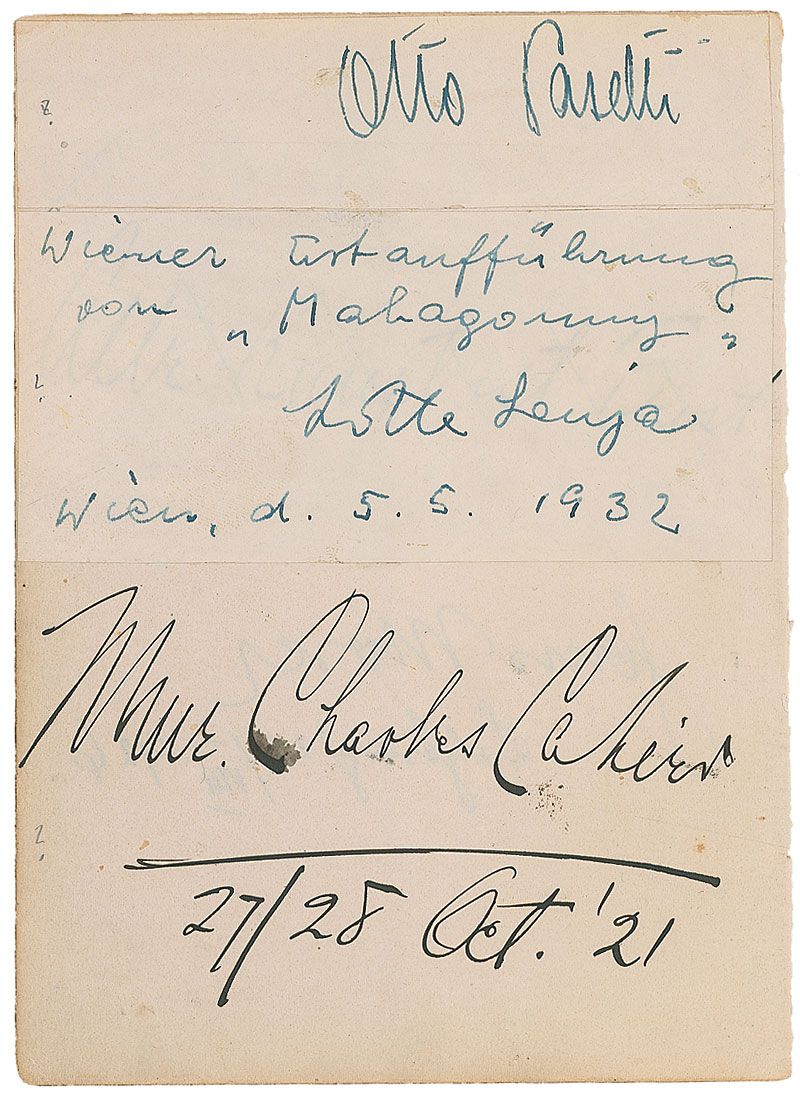 Otto Pasetti
Wiener Erstaufführung
von „Mahagonny"
Lotte Lenja
Wien, d. 5. 5. 1932
Mme. Charles Cahier
27/28 Oct. '21